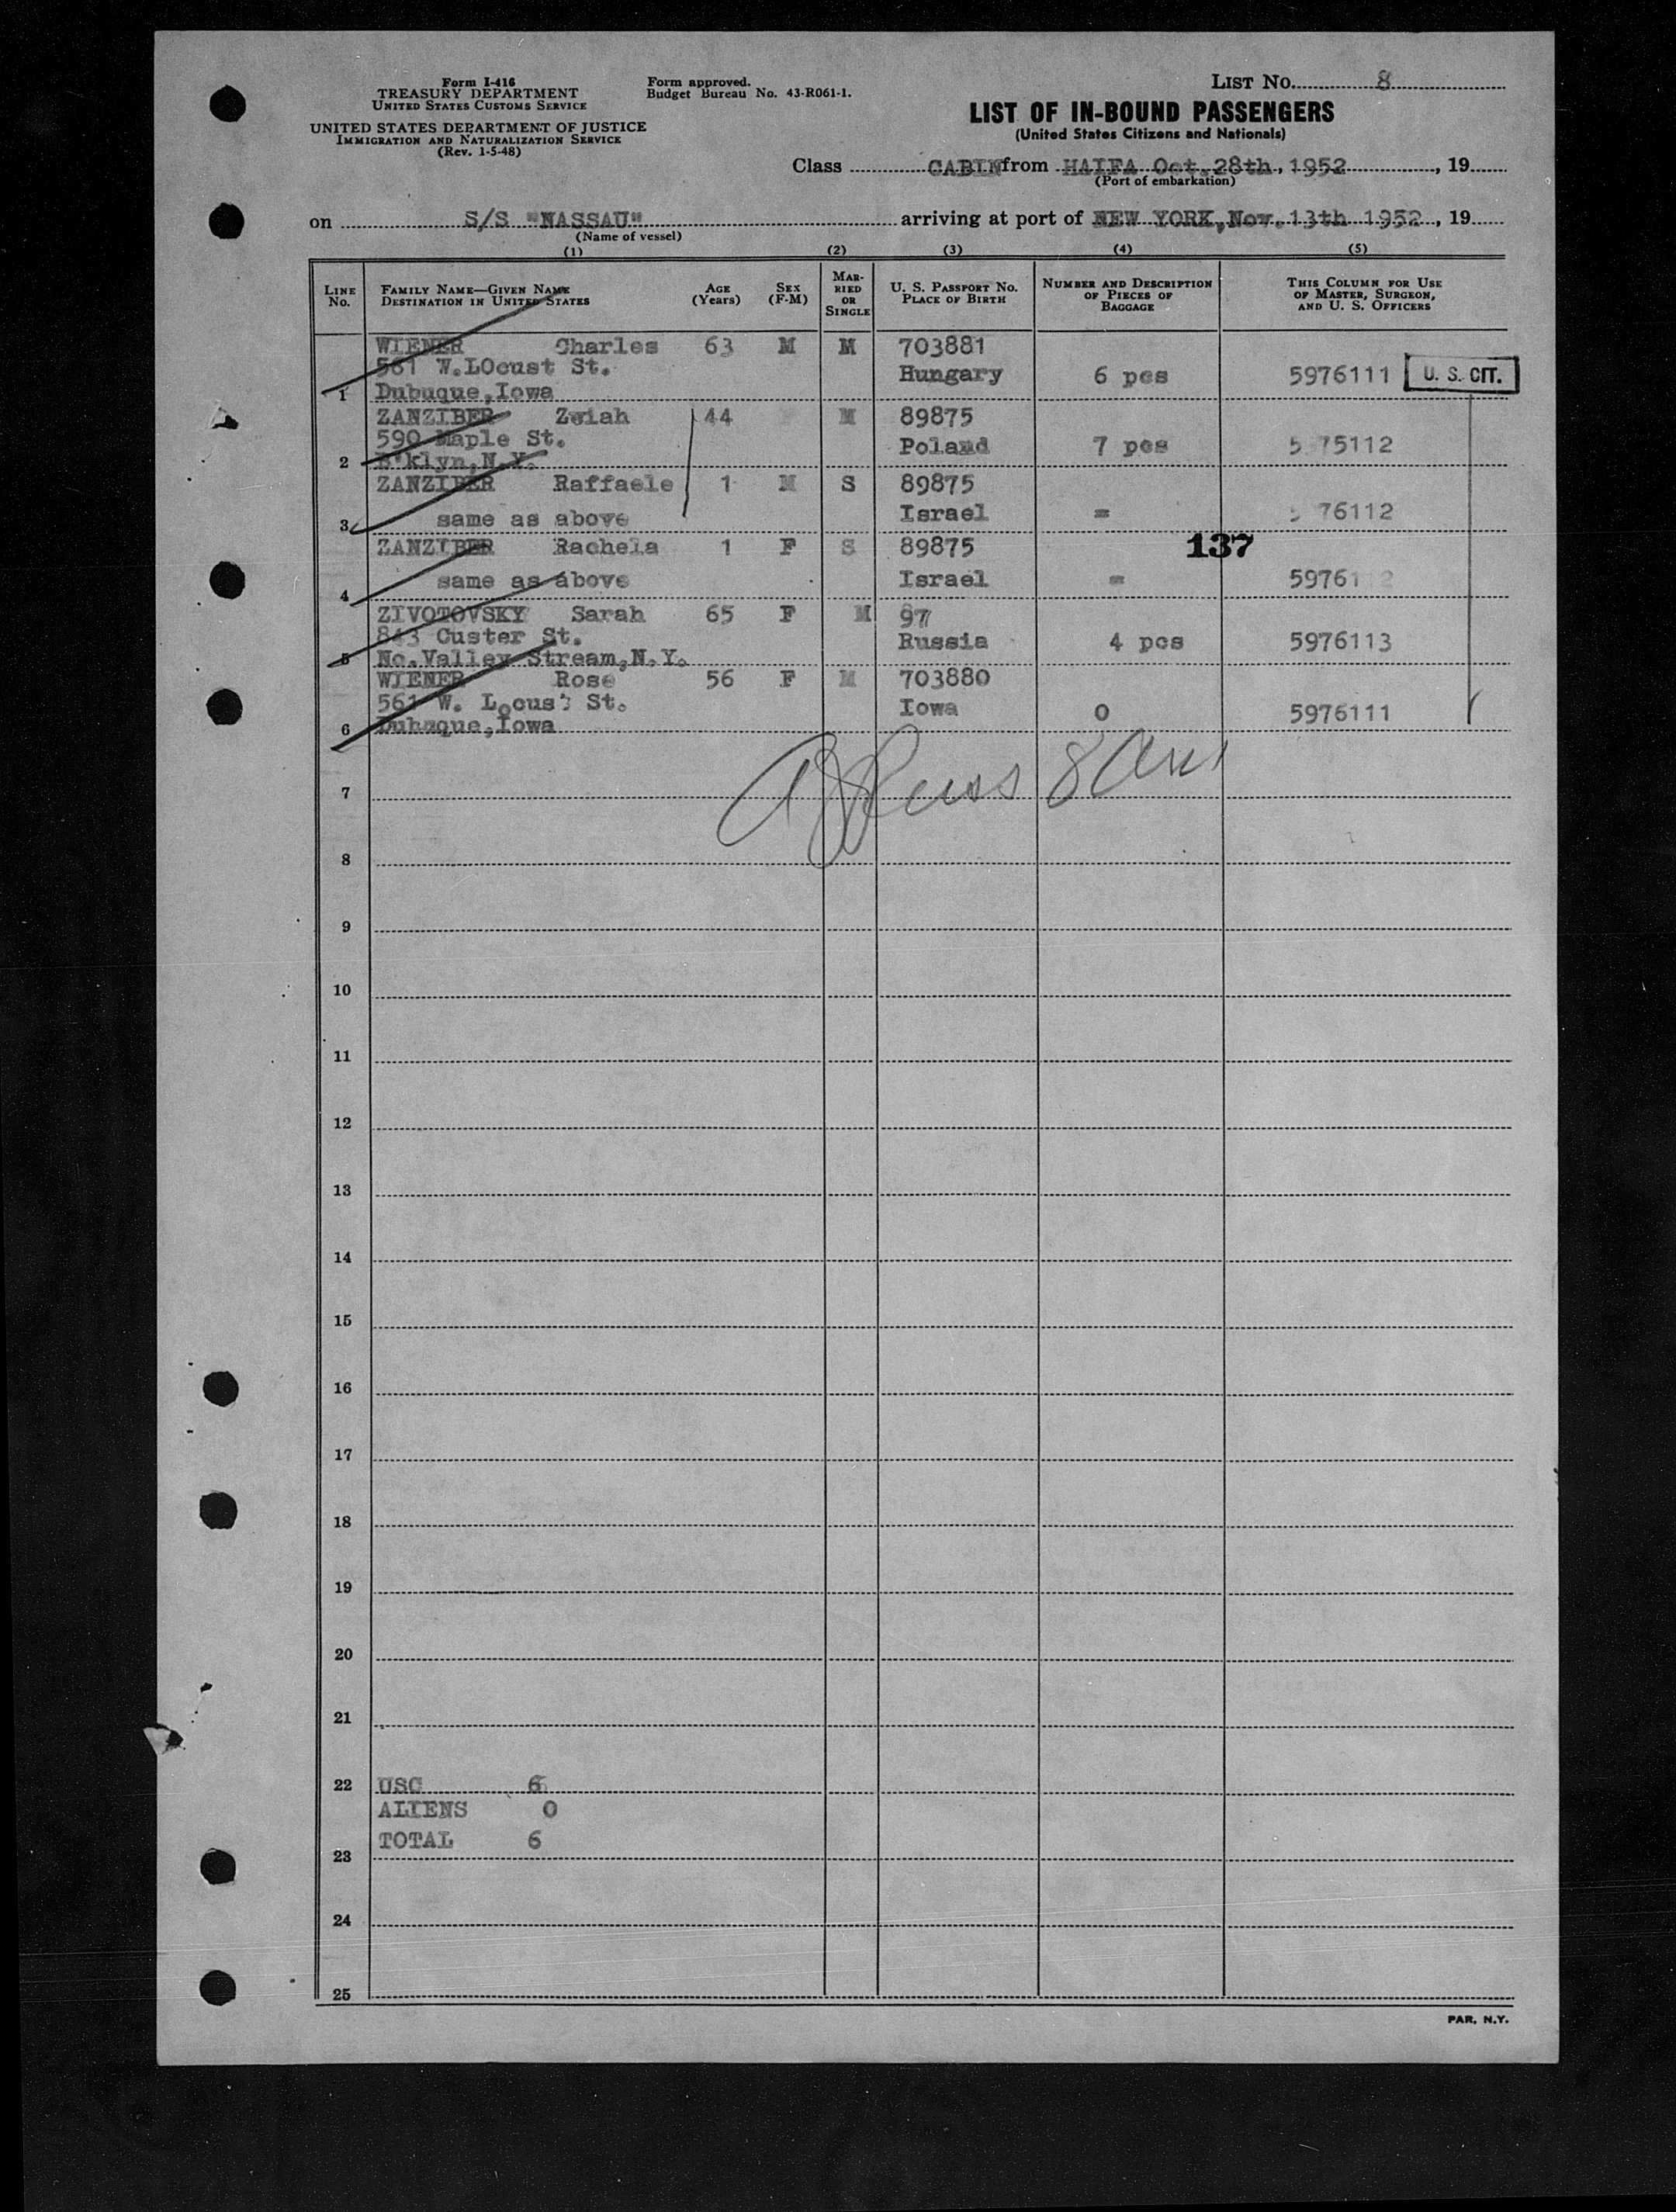 Form I-416
TREASURY DEPARTMENT
UNITED STATES CUSTOMS SERVICE
UNITED STATES DEPARTMENT OF JUSTICE
IMMIGRATION AND NATURALIZATION SERVICE
(Rev. 1-5-48)
Form approved.
Budget Bureau No. 43-R061-1.
LIST No. 8
LIST OF IN-BOUND PASSENGERS
(United States Citizens and Nationals)
Class CABIN from HAIFA Oct. 28th, 1952, 19
(Port of embarkation)
on S/S "NASSAU" arriving at port of NEW YORK, Nov. 13th 1952, 19
(Name of vessel)
(1) (2) (3) (4) (5)
LINE No. FAMILY NAME—GIVEN NAME DESTINATION IN UNITED STATES AGE (Years) SEX (F-M) MARRIED OR SINGLE U. S. PASSPORT No. PLACE OF BIRTH NUMBER AND DESCRIPTION OF PIECES OF BAGGAGE THIS COLUMN FOR USE OF MASTER, SURGEON, AND U. S. OFFICERS
WIENER Charles 63 M M 703881
561 W.LOcust St. Hungary 6 pcs 5976111 U. S. CIT.
1 Dubuque,Iowa
ZANZIBER Zwiah 44 M 89875
590 Maple St. Poland 7 pcs 5 75112
2 B'klyn,N.Y.
ZANZIBER Raffaele 1 M S 89875
3 same as above Israel = 5 76112
ZANZIBER Rachela 1 F S 89875 137
4 same as above Israel = 59761 2
ZIVOTOVSKY Sarah 65 F M 97
843 Custer St. Russia 4 pcs 5976113
5 No.Valley Stream,N.Y.
WIENER Rose 56 F M 703880
561 W. Locust St. Iowa 0 5976111
6 Dubuque,Iowa
7
8
9
10
11
12
13
14
15
16
17
18
19
20
21
22 USC 6
ALIENS 0
23 TOTAL 6
24
25
PAR. N.Y.